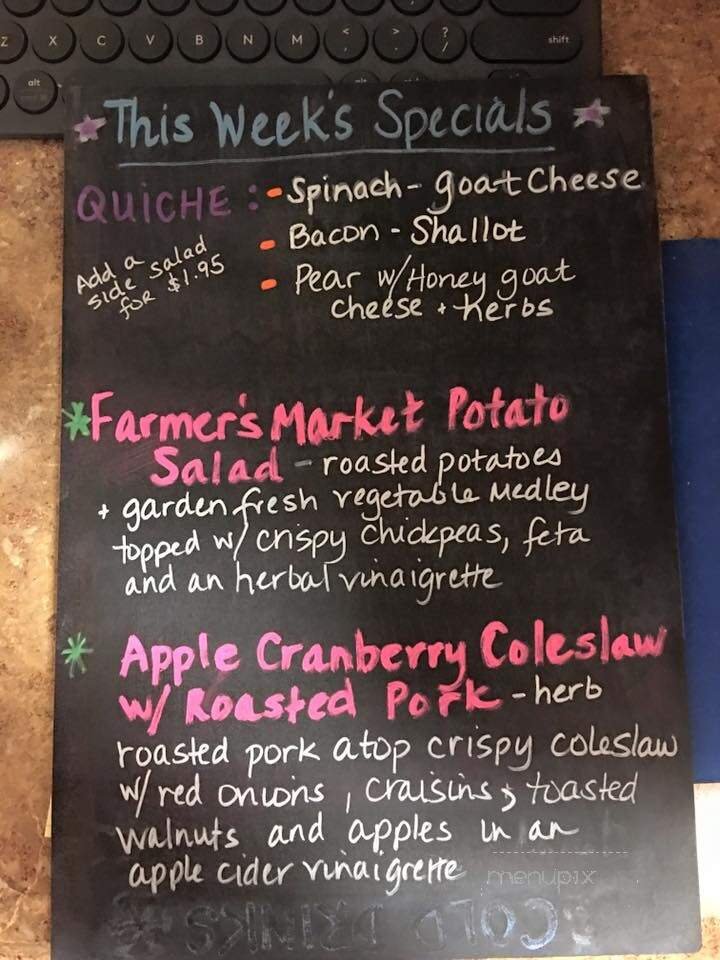 Z X C V B N M < , > . ? / shift
alt alt
This Week's Specials
QUICHE : - Spinach - goat Cheese
- Bacon - Shallot
Add a
side salad
for $1.95
- Pear w/Honey goat
cheese + Herbs
*Farmer's Market Potato
Salad - roasted potatoes
+ garden fresh vegetable Medley
topped w/ crispy chickpeas, feta
and an herbal vinaigrette
* Apple Cranberry Coleslaw
w/ Roasted Pork - herb
roasted pork atop crispy coleslaw
w/ red onions, craisins, toasted
walnuts and apples in an
apple cider vinaigrette
menupix
COLD DRINKS